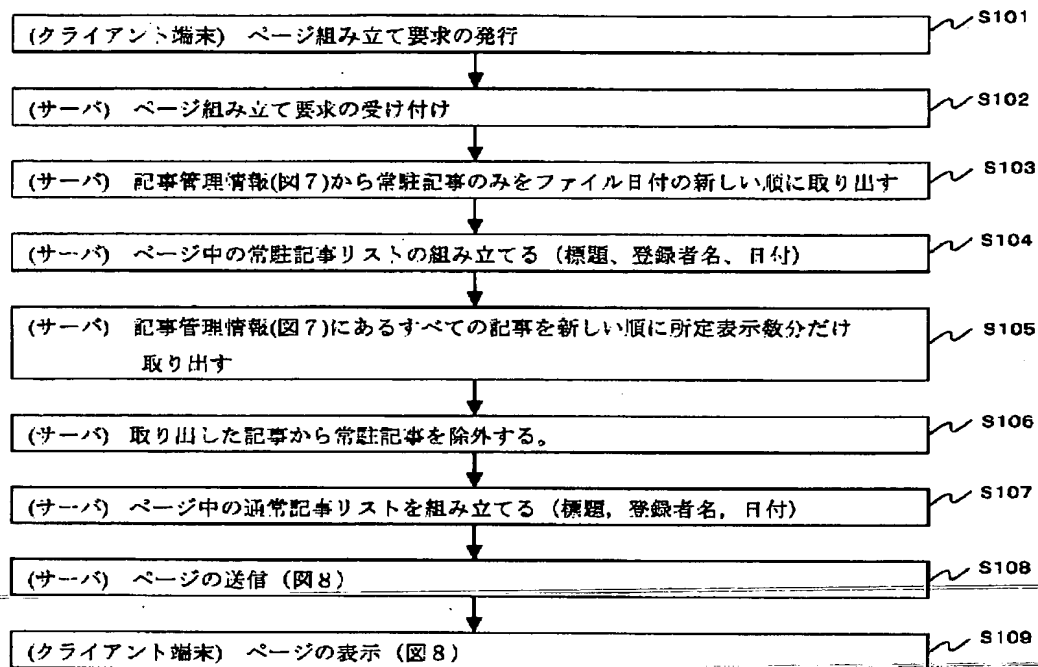 (クライアント端末) ページ組み立て要求の発行 S101
(サーバ) ページ組み立て要求の受け付け S102
(サーバ) 記事管理情報(図7)から常駐記事のみをファイル日付の新しい順に取り出す S103
(サーバ) ページ中の常駐記事リストの組み立てる (標題、登録者名、日付) S104
(サーバ) 記事管理情報(図7)にあるすべての記事を新しい順に所定表示数分だけ S105
取り出す
(サーバ) 取り出した記事から常駐記事を除外する。 S106
(サーバ) ページ中の通常記事リストを組み立てる (標題, 登録者名, 日付) S107
(サーバ) ページの送信 (図8) S108
(クライアント端末) ページの表示 (図8) S109